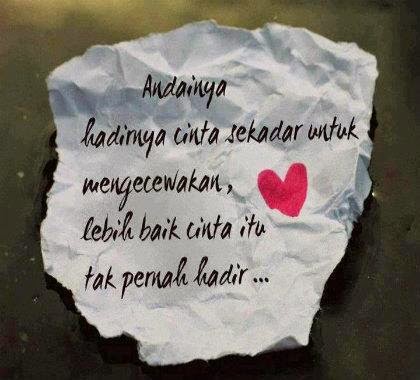 Andainya
hadirnya cinta sekadar untuk
mengecewakan,
lebih baik cinta itu
tak pernah hadir ...